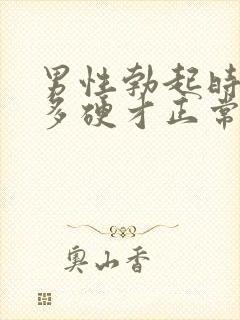 男性勃起时
多硬才正常
奥山香